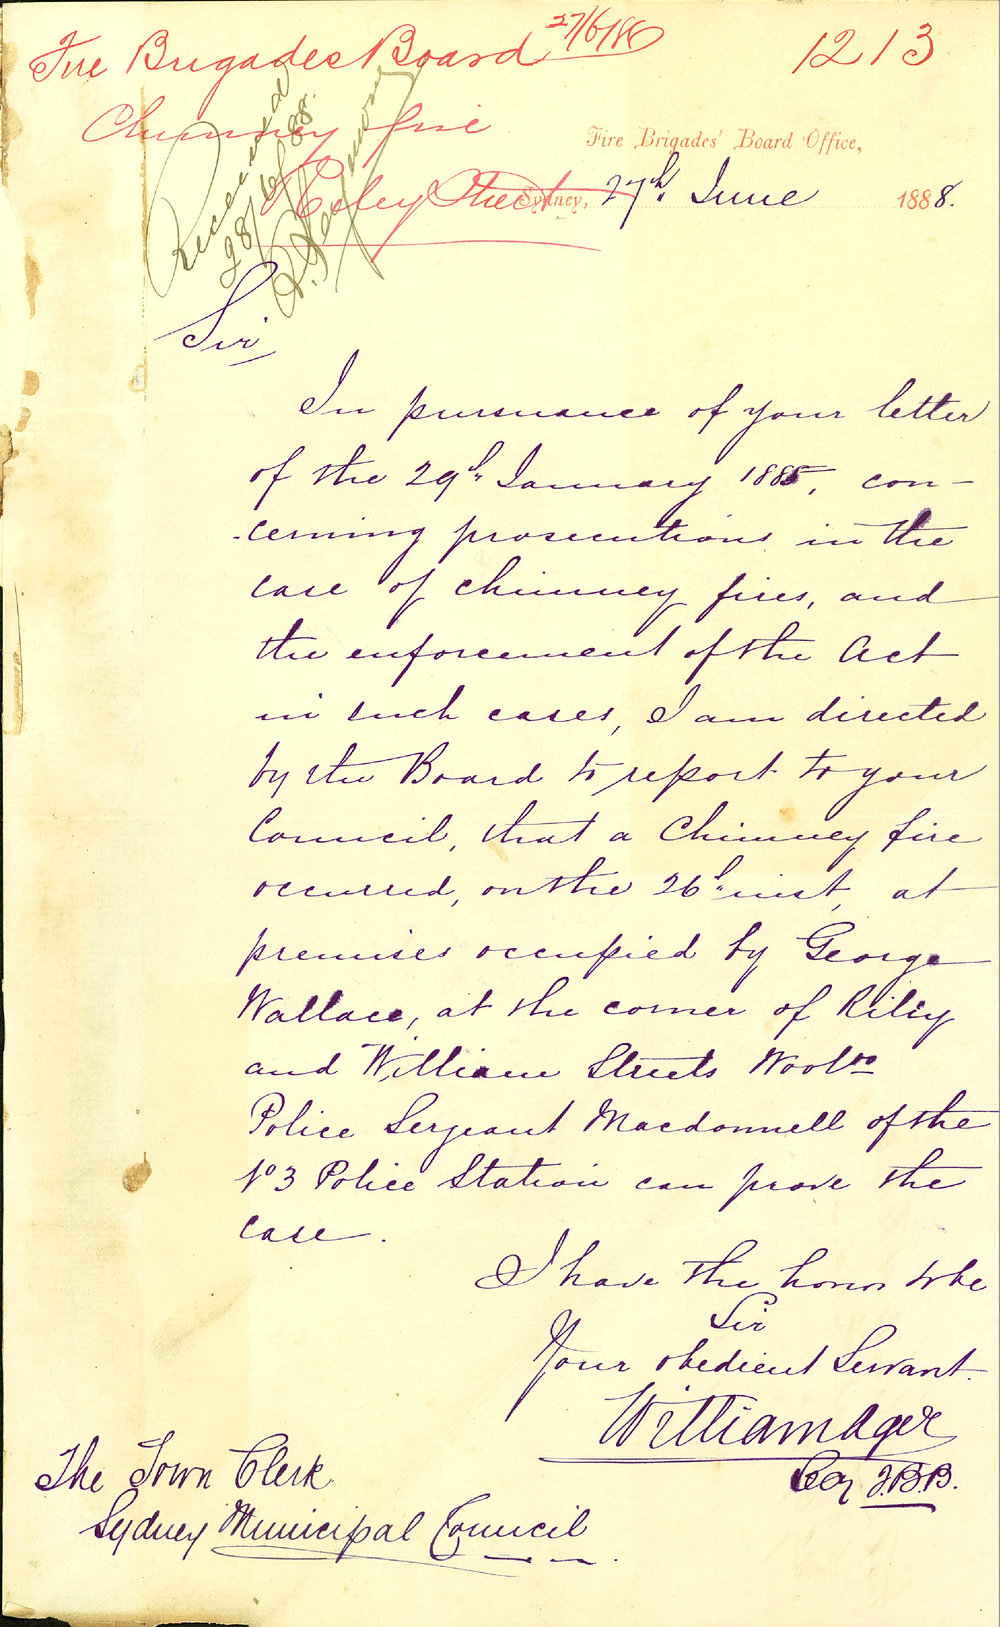 Fire Brigades Board 27/6/86
1213
Chimney fire
Riley Street
Received
28/6/88.
Fire Brigades' Board Office,
Sydney, 27th June 1888.
Sir
In pursuance of your letter
of the 29th January 1885, con-
-cerning prosecutions in the
case of chimney fires, and
the enforcement of the Act
in such cases, I am directed
by the Board to report to your
Council, that a Chimney fire
occurred, on the 26th inst, at
premises occupied by George
Wallace, at the corner of Riley
and William Streets Wooloo
Police Sergeant Macdonnell of the
No 3 Police Station can prove the
case.
I have the honor to be
Sir
Your obedient Servant.
William Ager
Secy F.B.B.
The Town Clerk
Sydney Municipal Council.